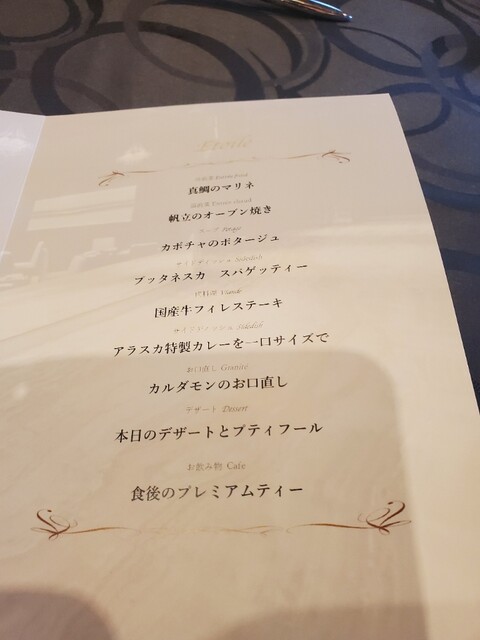 Etoile
真鯛のマリネ
帆立のオーブン焼き
スープ Potage
カボチャのポタージュ
サイドディッシュ Sidedish
プッタネスカ スパゲッティー
肉料理 Viande
国産牛フィレステーキ
サイドディッシュ Sidedish
アラスカ特製カレーを一口サイズで
お口直し Granite
カルダモンのお口直し
デザート Dessert
本日のデザートとプティフール
お飲み物 Cafe
食後のプレミアムティー